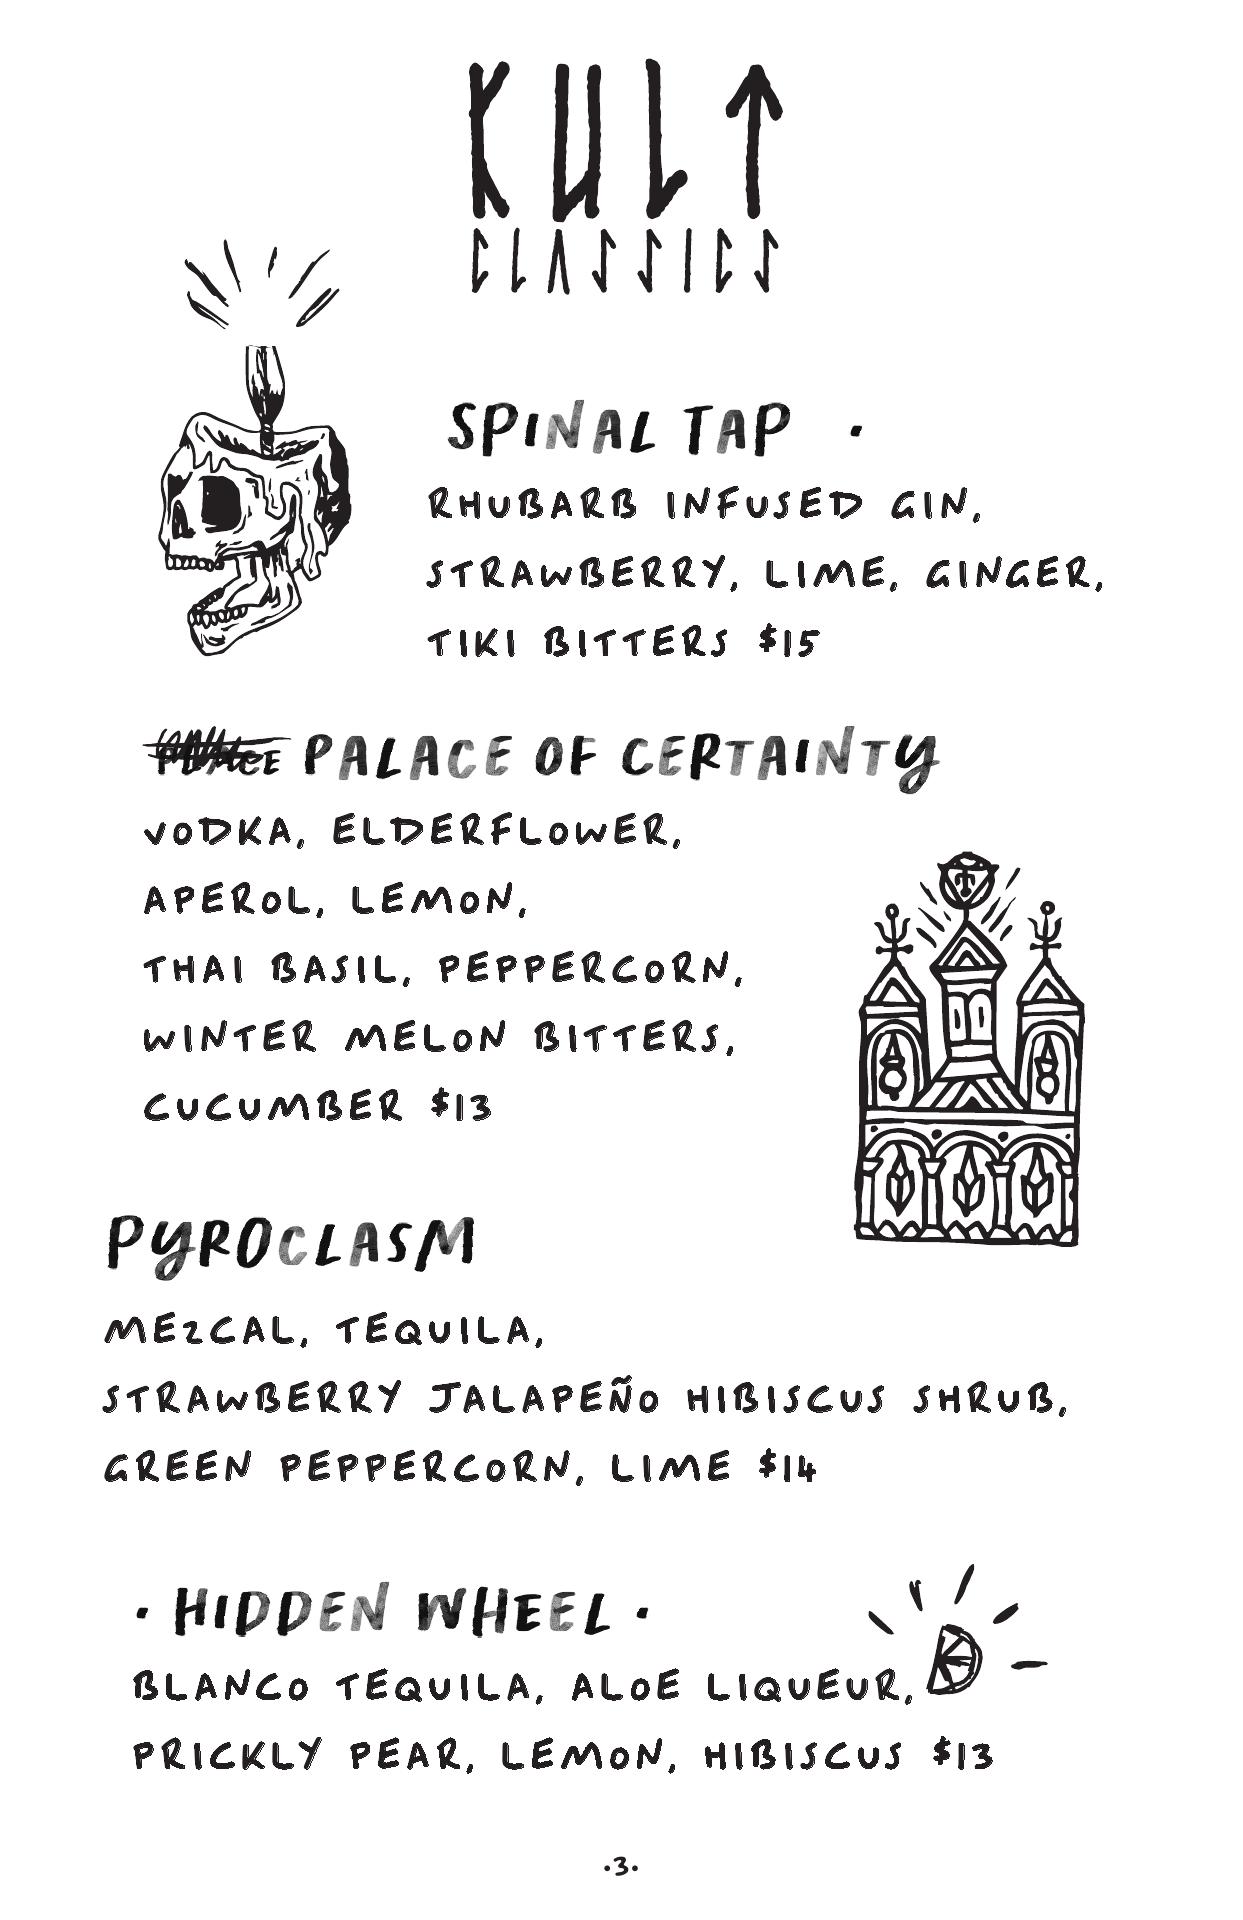 KULT
CLASSICS
SPINAL TAP ·
RHUBARB INFUSED GIN,
STRAWBERRY, LIME, GINGER,
TIKI BITTERS $15
PALACE OF CERTAINTY
VODKA, ELDERFLOWER,
APEROL, LEMON,
THAI BASIL, PEPPERCORN,
WINTER MELON BITTERS,
CUCUMBER $13
PYROCLASM
MEZCAL, TEQUILA,
STRAWBERRY JALAPEÑO HIBISCUS SHRUB,
GREEN PEPPERCORN, LIME $14
· HIDDEN WHEEL ·
BLANCO TEQUILA, ALOE LIQUEUR,
PRICKLY PEAR, LEMON, HIBISCUS $13
·3·